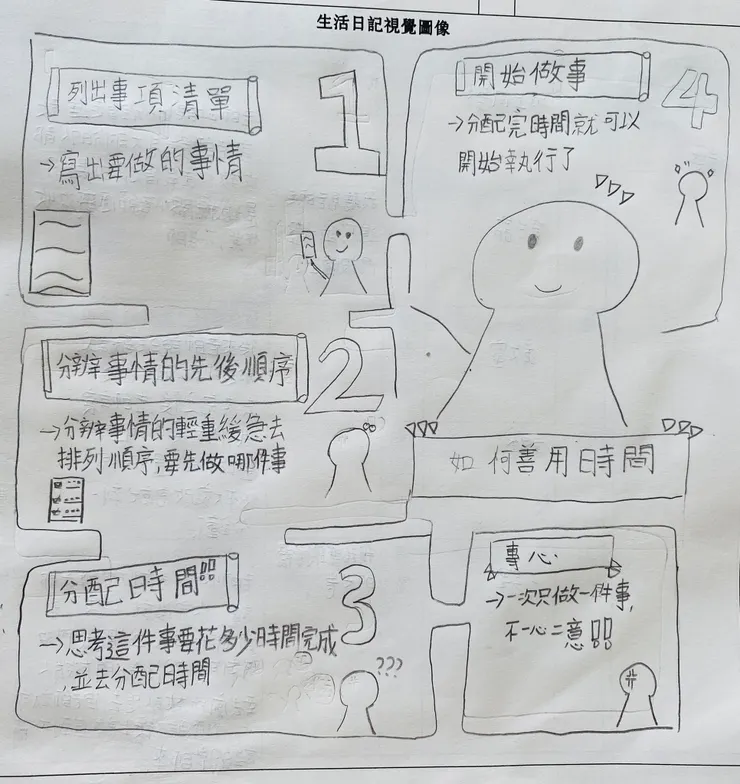 生活日記視覺圖像
列出事項清單
1
→寫出要做的事情
分辨事情的先後順序
2
→分辨事情的輕重緩急去
排列順序,要先做哪件事
分配時間!!
3
→思考這件事要花多少時間完成
,並去分配時間
???
開始做事
4
→分配完時間就可以
開始執行了
如何善用時間
專心
→一次只做一件事,
不一心二意!!